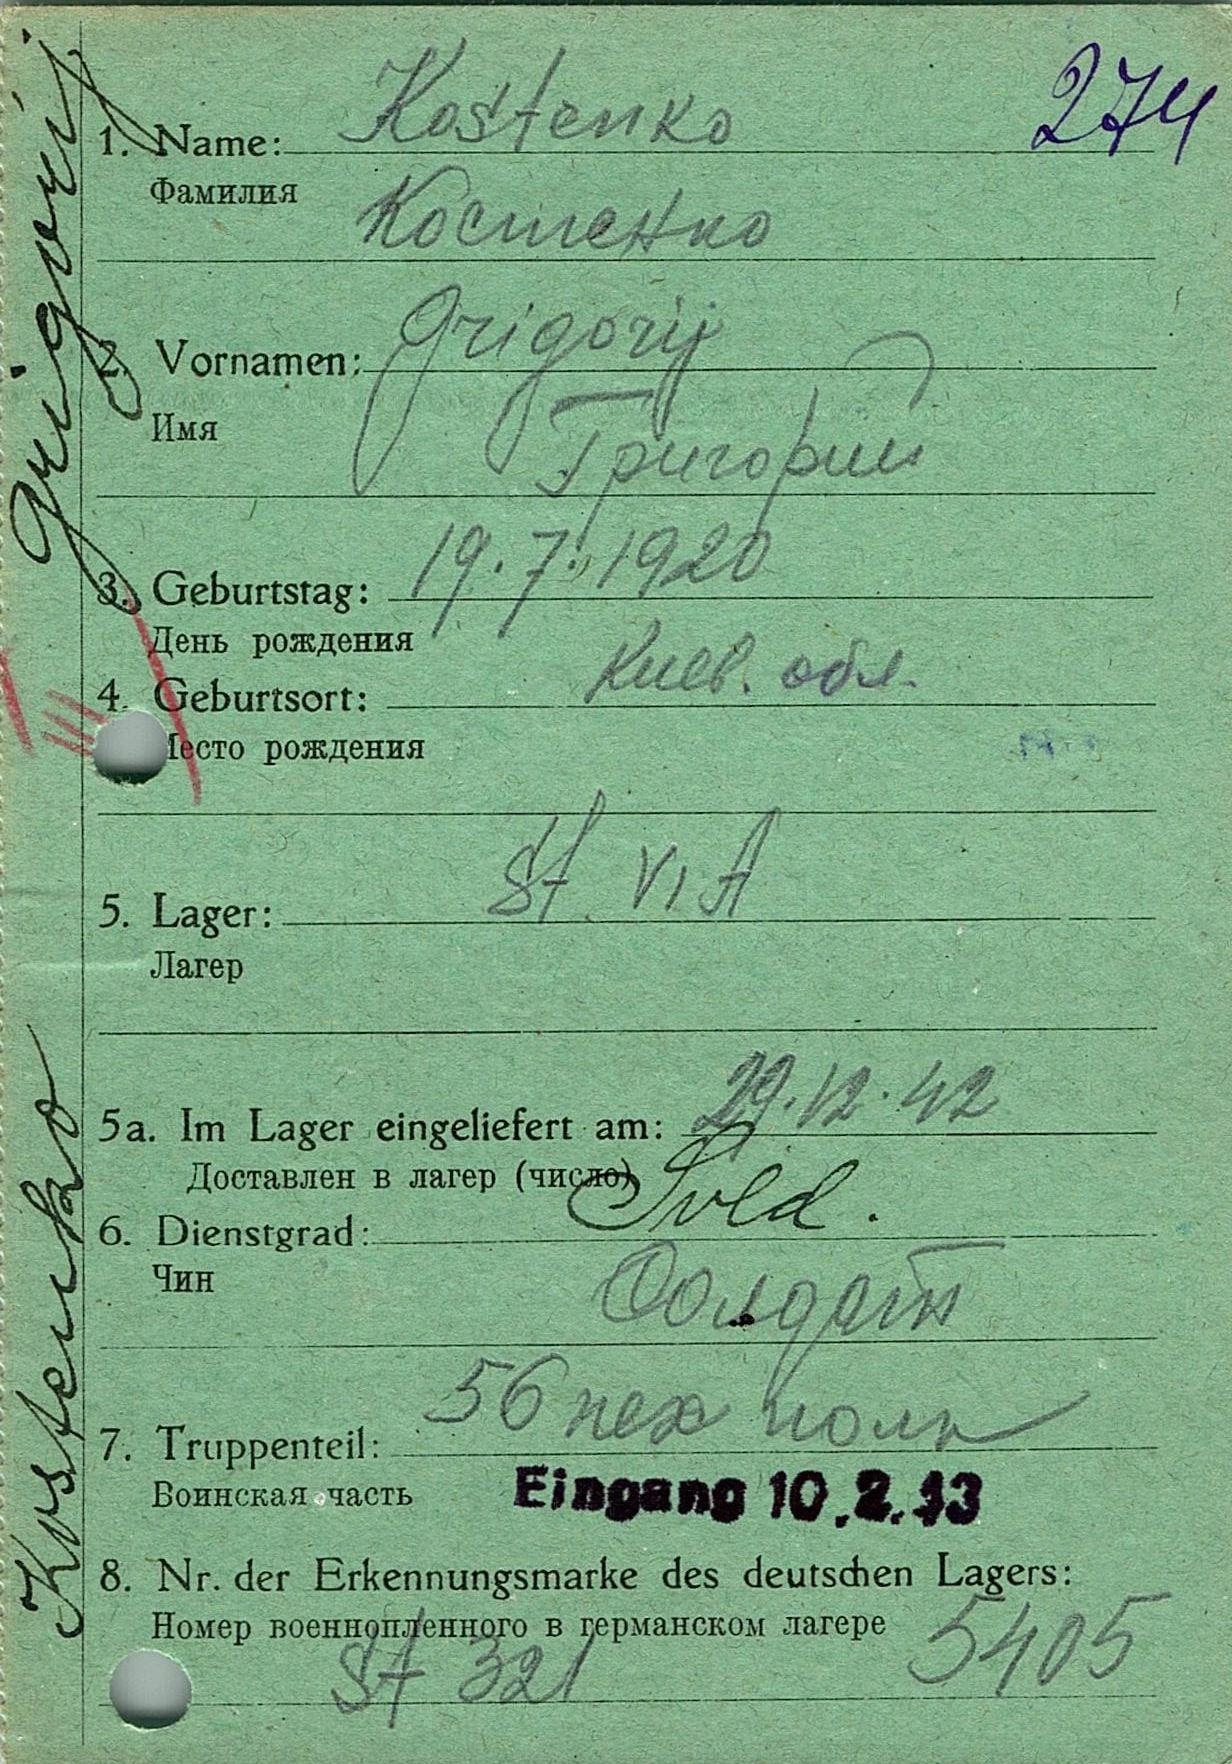 274
1. Name: Kostenko
Фамилия Костенко
2. Vornamen: Grigorij
Имя Григорий
3. Geburtstag: 19.7.1920
День рождения
4. Geburtsort: Киев. обл.
Место рождения
5. Lager: St VI A
Лагер
5a. Im Lager eingeliefert am: 29.12.42
Доставлен в лагер (число)
6. Dienstgrad: Sold.
Чин Солдат
7. Truppenteil: 56 пех полк
Воинская часть Eingang 10.2.43
8. Nr. der Erkennungsmarke des deutschen Lagers:
Номер военнопленного в германском лагере 5405
St 321
Kostenko Grigorij